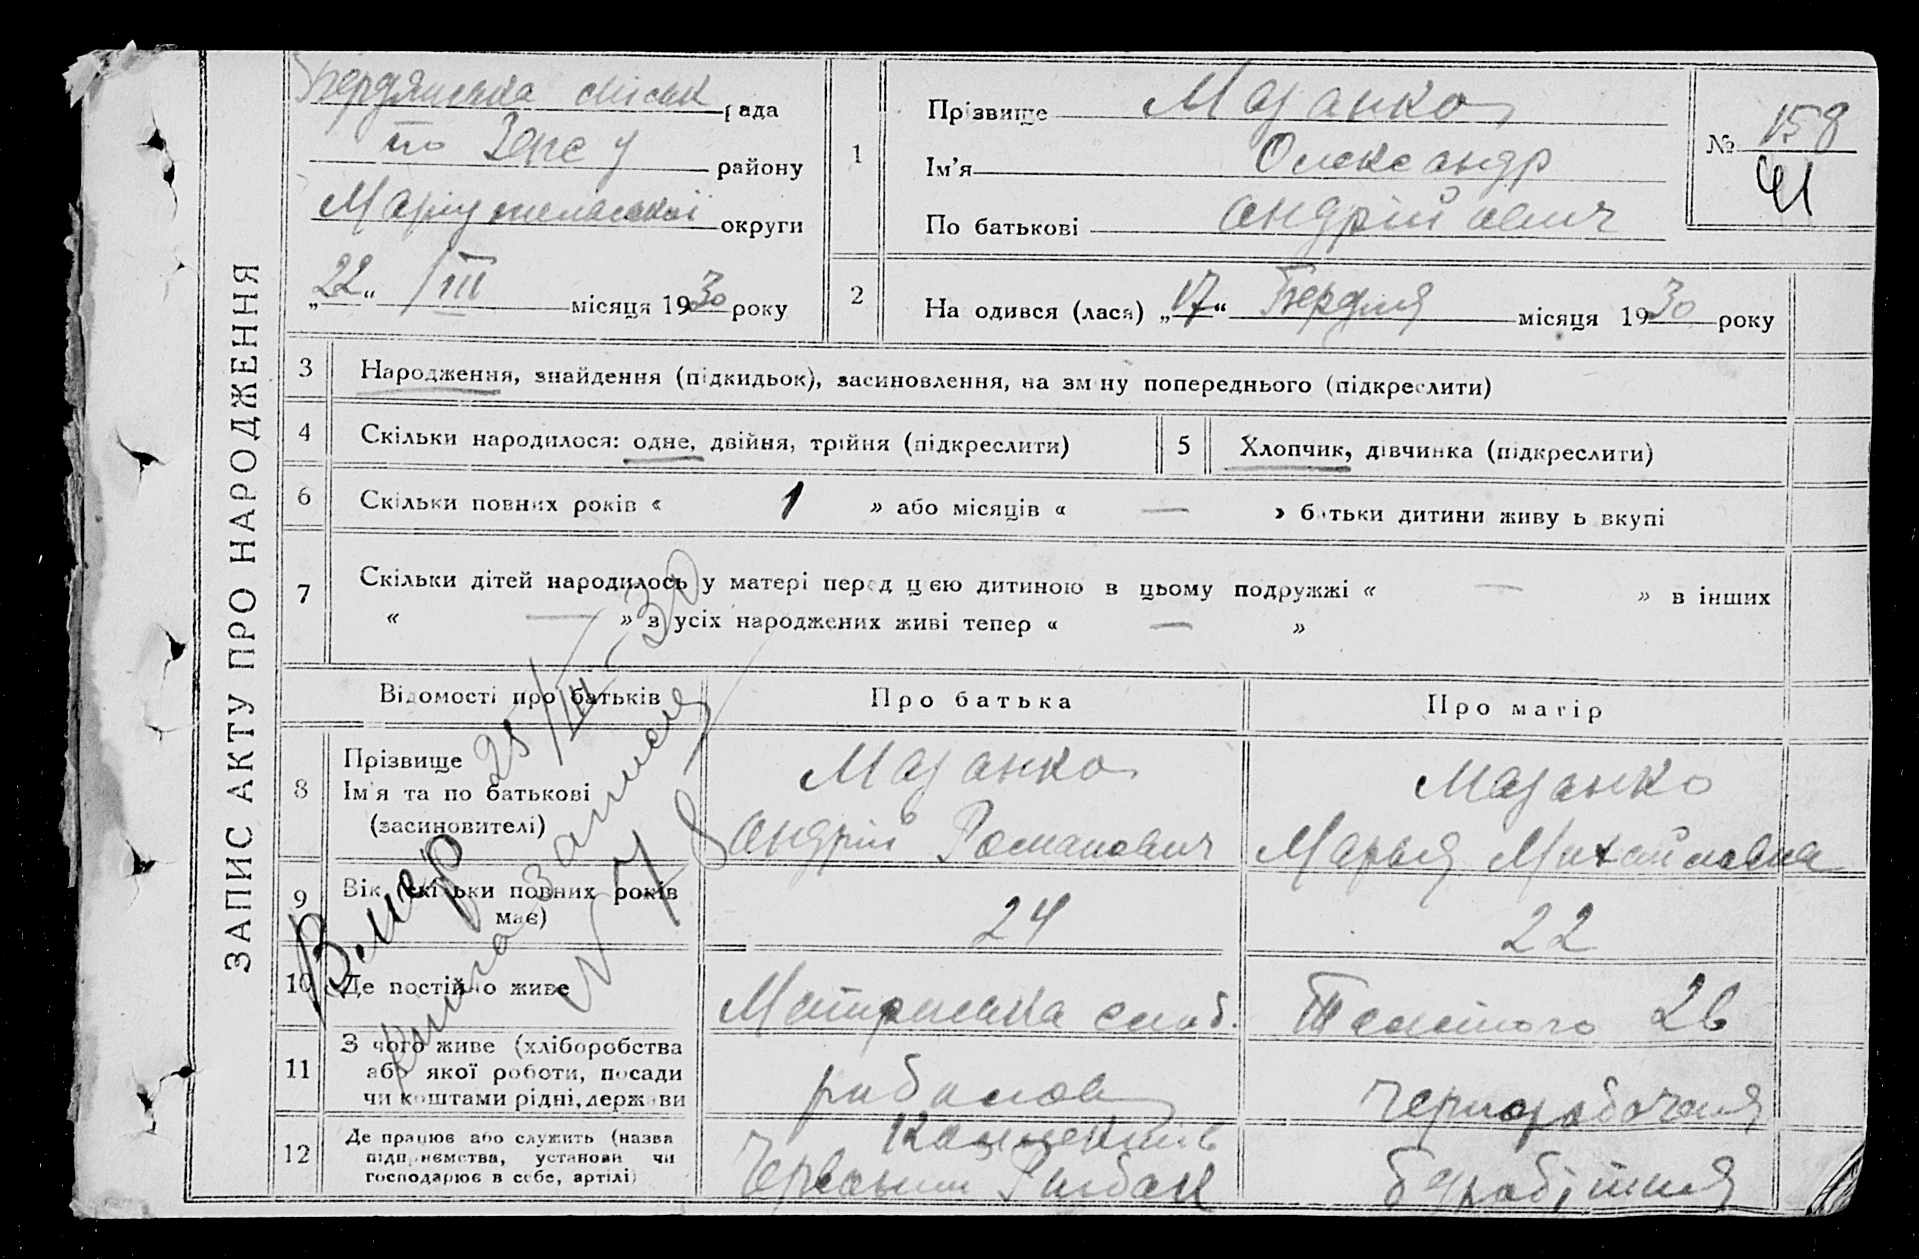 ЗАПИС АКТУ ПРО НАРОДЖЕННЯ
Бердянська міськ рада
по Загс у району
Маріупольської округи
„22“ /III місяця 1930 року
1
Прізвище Мазанко
Ім'я Олександр
По батькові Андрійович
№ 158
41
2
На одився (лася) „17“ Бердня місяця 1930 року
3 Народження, знайдення (підкидьок), засиновлення, на зм ну попереднього (підкреслити)
4 Скільки народилося: одне, двійня, трійня (підкреслити)
5 Хлопчик, дівчинка (підкреслити)
6 Скільки повних років « 1 » або місяців « — » батьки дитини живу ь вкупі
7 Скільки дітей народилось у матері перед цією дитиною в цьому подружжі « — » в інших
« — » з усіх народжених живі тепер « — »
Відомості про батьків
Про батька
Про матір
8 Прізвище
Ім'я та по батькові
(засиновителі)
Мазанко
Андрій Романович
Мазанко
Марья Михайловна
9 Вік (скільки повних років
має)
24
22
10 Де постійно живе
слоб.
2в
11 З чого живе (хліборобства
або якої роботи, посади
чи коштами рідні, держави
рибалов
Чернорабочая
12 Де працює або служить (назва
підприємства, установи чи
господарює в себе, артілі)
Червоний Рибак
безробітня
Вмер 25/III-30
книга записей
№ 78